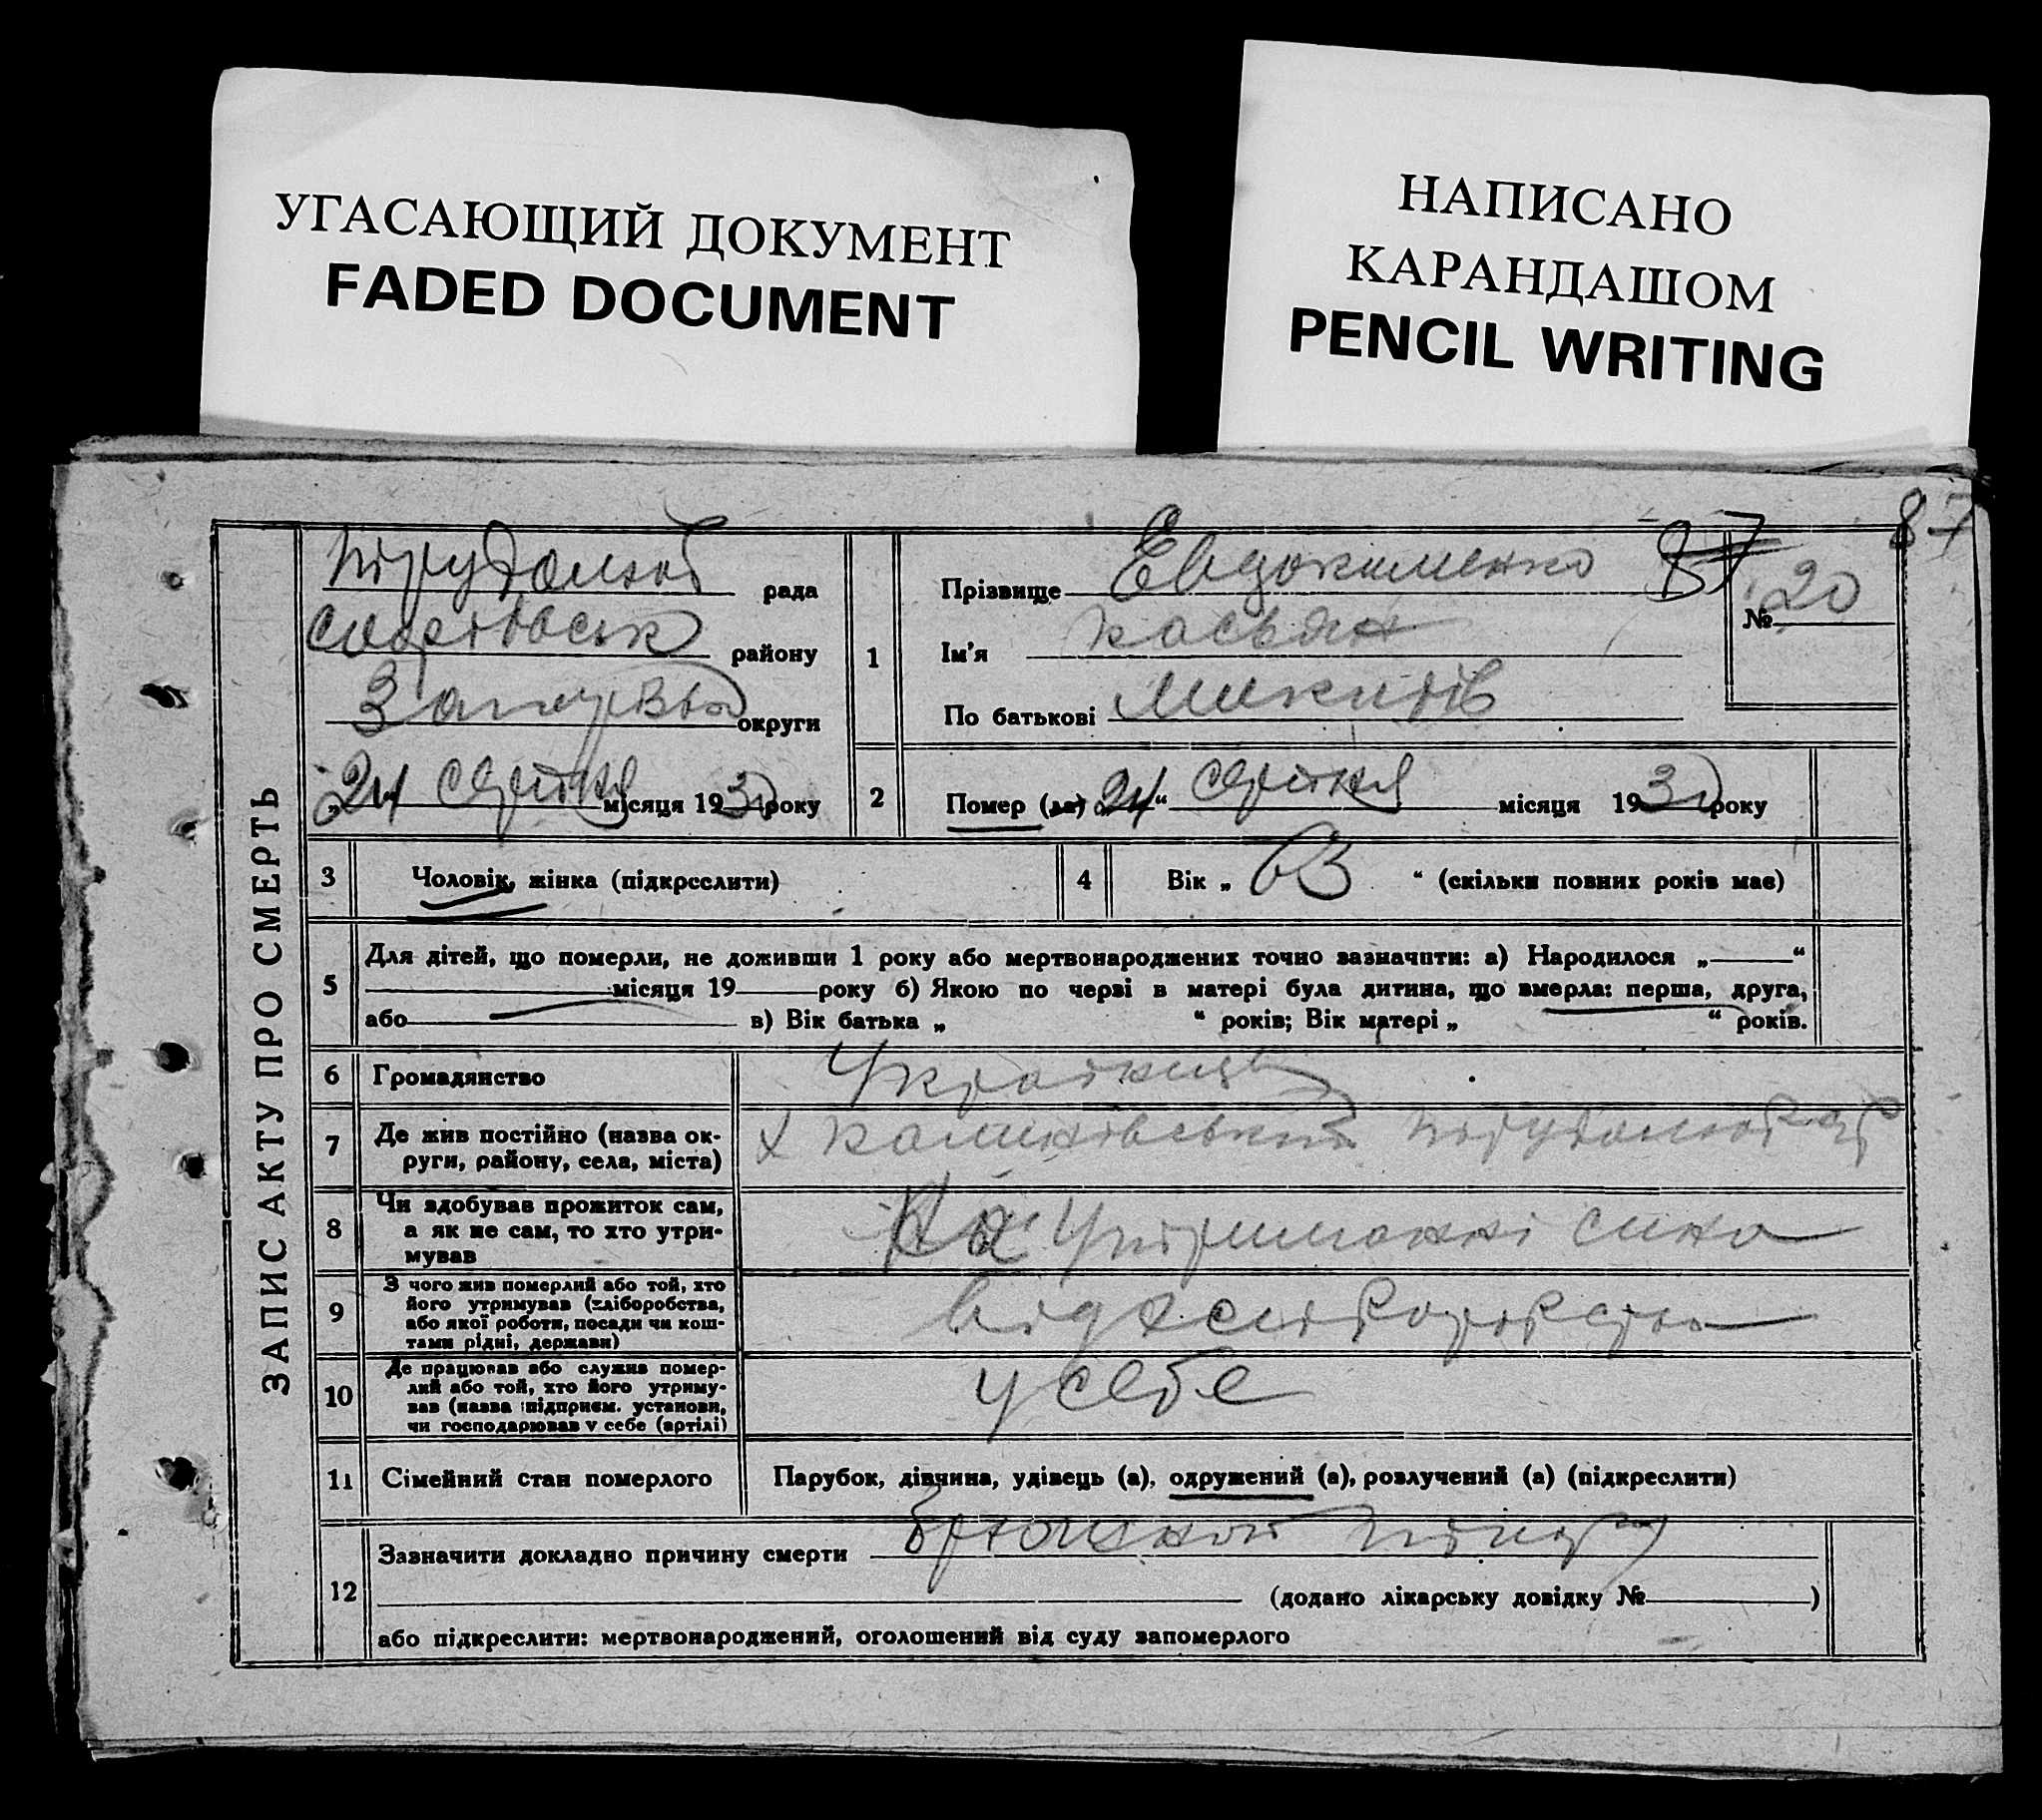 УГАСАЮЩИЙ ДОКУМЕНТ
FADED DOCUMENT
НАПИСАНО
КАРАНДАШОМ
PENCIL WRITING
87
ЗАПИС АКТУ ПРО СМЕРТЬ
рада
району
округи
„24“ серпня місяця 1930 року
1
Прізвище Евдокименко
87
№ 20
Ім'я Касьян
По батькові Микитів
2
Помер (ла) 24“ серпня місяця 1930 року
3
Чоловік, жінка (підкреслити)
4
Вік „ 63 “ (скільки повних років має)
5
Для дітей, що померли, не доживши 1 року або мертвонароджених точно зазначити: а) Народилося „ “
місяця 19 року б) Якою по черві в матері була дитина, що вмерла: перша, друга,
або в) Вік батька „ “ років; Вік матері „ “ років.
6
Громадянство
Українець
7
Де жив постійно (назва ок-
руги, району, села, міста)
х
8
Чи здобував прожиток сам,
а як не сам, то хто утри-
мував
На утриманні сина
9
З чого жив померлий або той, хто
його утримував (хліборобства,
або якої роботи, посади чи кош-
тами рідні, держави)
від хліборобства
10
Де працював або служив помер-
лий або той, хто його утриму-
вав (назва підприєм. установи,
чи господарював у себе (артілі)
у себе
11
Сімейний стан померлого
Парубок, дівчина, удівець (а), одружений (а), розлучений (а) (підкреслити)
12
Зазначити докладно причину смерти
(додано лікарську довідку № )
або підкреслити: мертвонароджений, оголошений від суду запомерлого